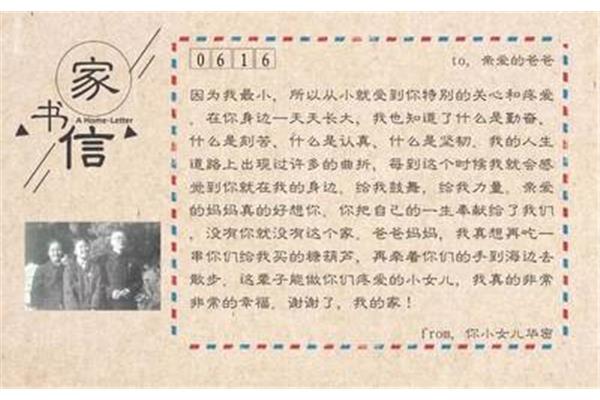 家
书
信
A Home-Letter
0616
to, 亲爱的爸爸
因为我最小，所以从小就受到你特别的关心和疼爱
。在你身边一天天长大，我也知道了什么是勤奋、
什么是刻苦、什么是认真、什么是坚韧。我的人生
道路上出现过许多的曲折，每到这个时候我就会感
觉到你就在我的身边。给我鼓舞，给我力量。亲爱
的妈妈真的好想你。你把自己的一生奉献给了我们
，没有你就没有这个家。爸爸妈妈，我真想再吃一
串你们给我买的糖葫芦，再牵着你们的手到海边去
散步。这辈子能做你们疼爱的小女儿，我真的非常
非常的幸福。谢谢了，我的家！
from, 你小女儿华密